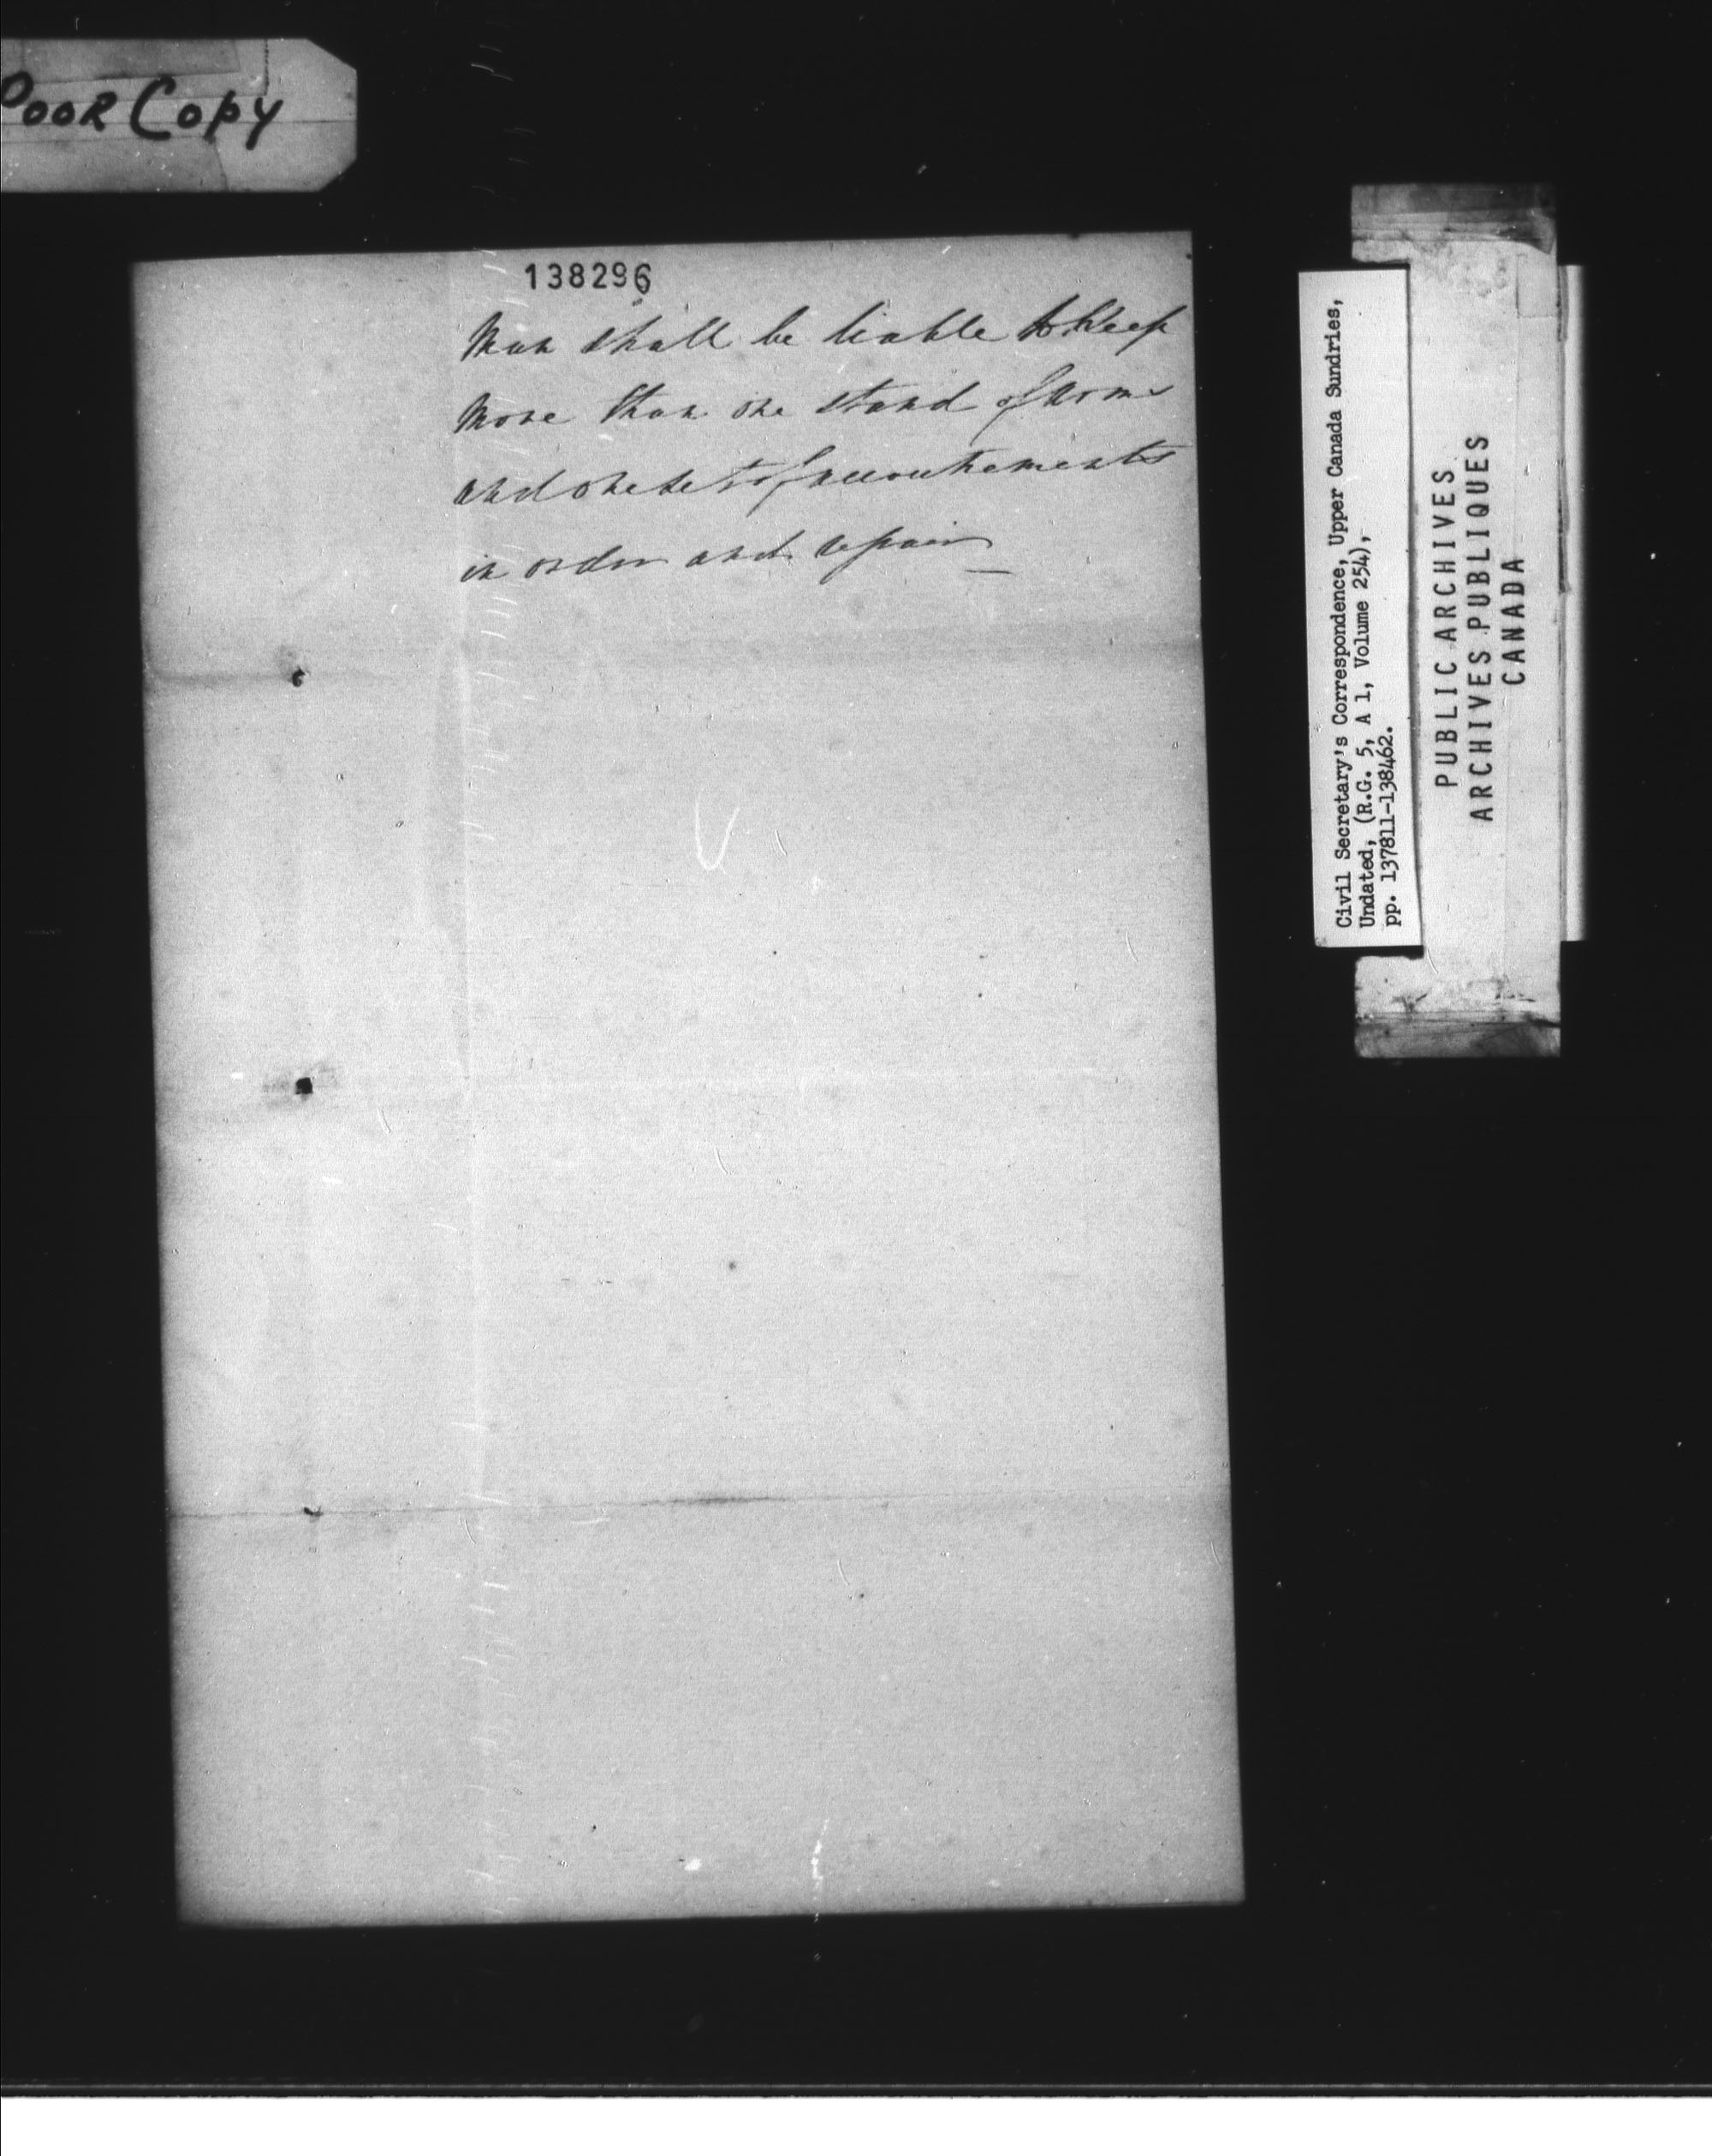 Poor Copy
138296
Man shall be liable to keep
more than one stand of arms
and one set of accoutrements
in order and repair —
Civil Secretary's Correspondence, Upper Canada Sundries,
Undated, (R.G. 5, A 1, Volume 254),
pp. 137811-138462.
PUBLIC ARCHIVES
ARCHIVES PUBLIQUES
CANADA